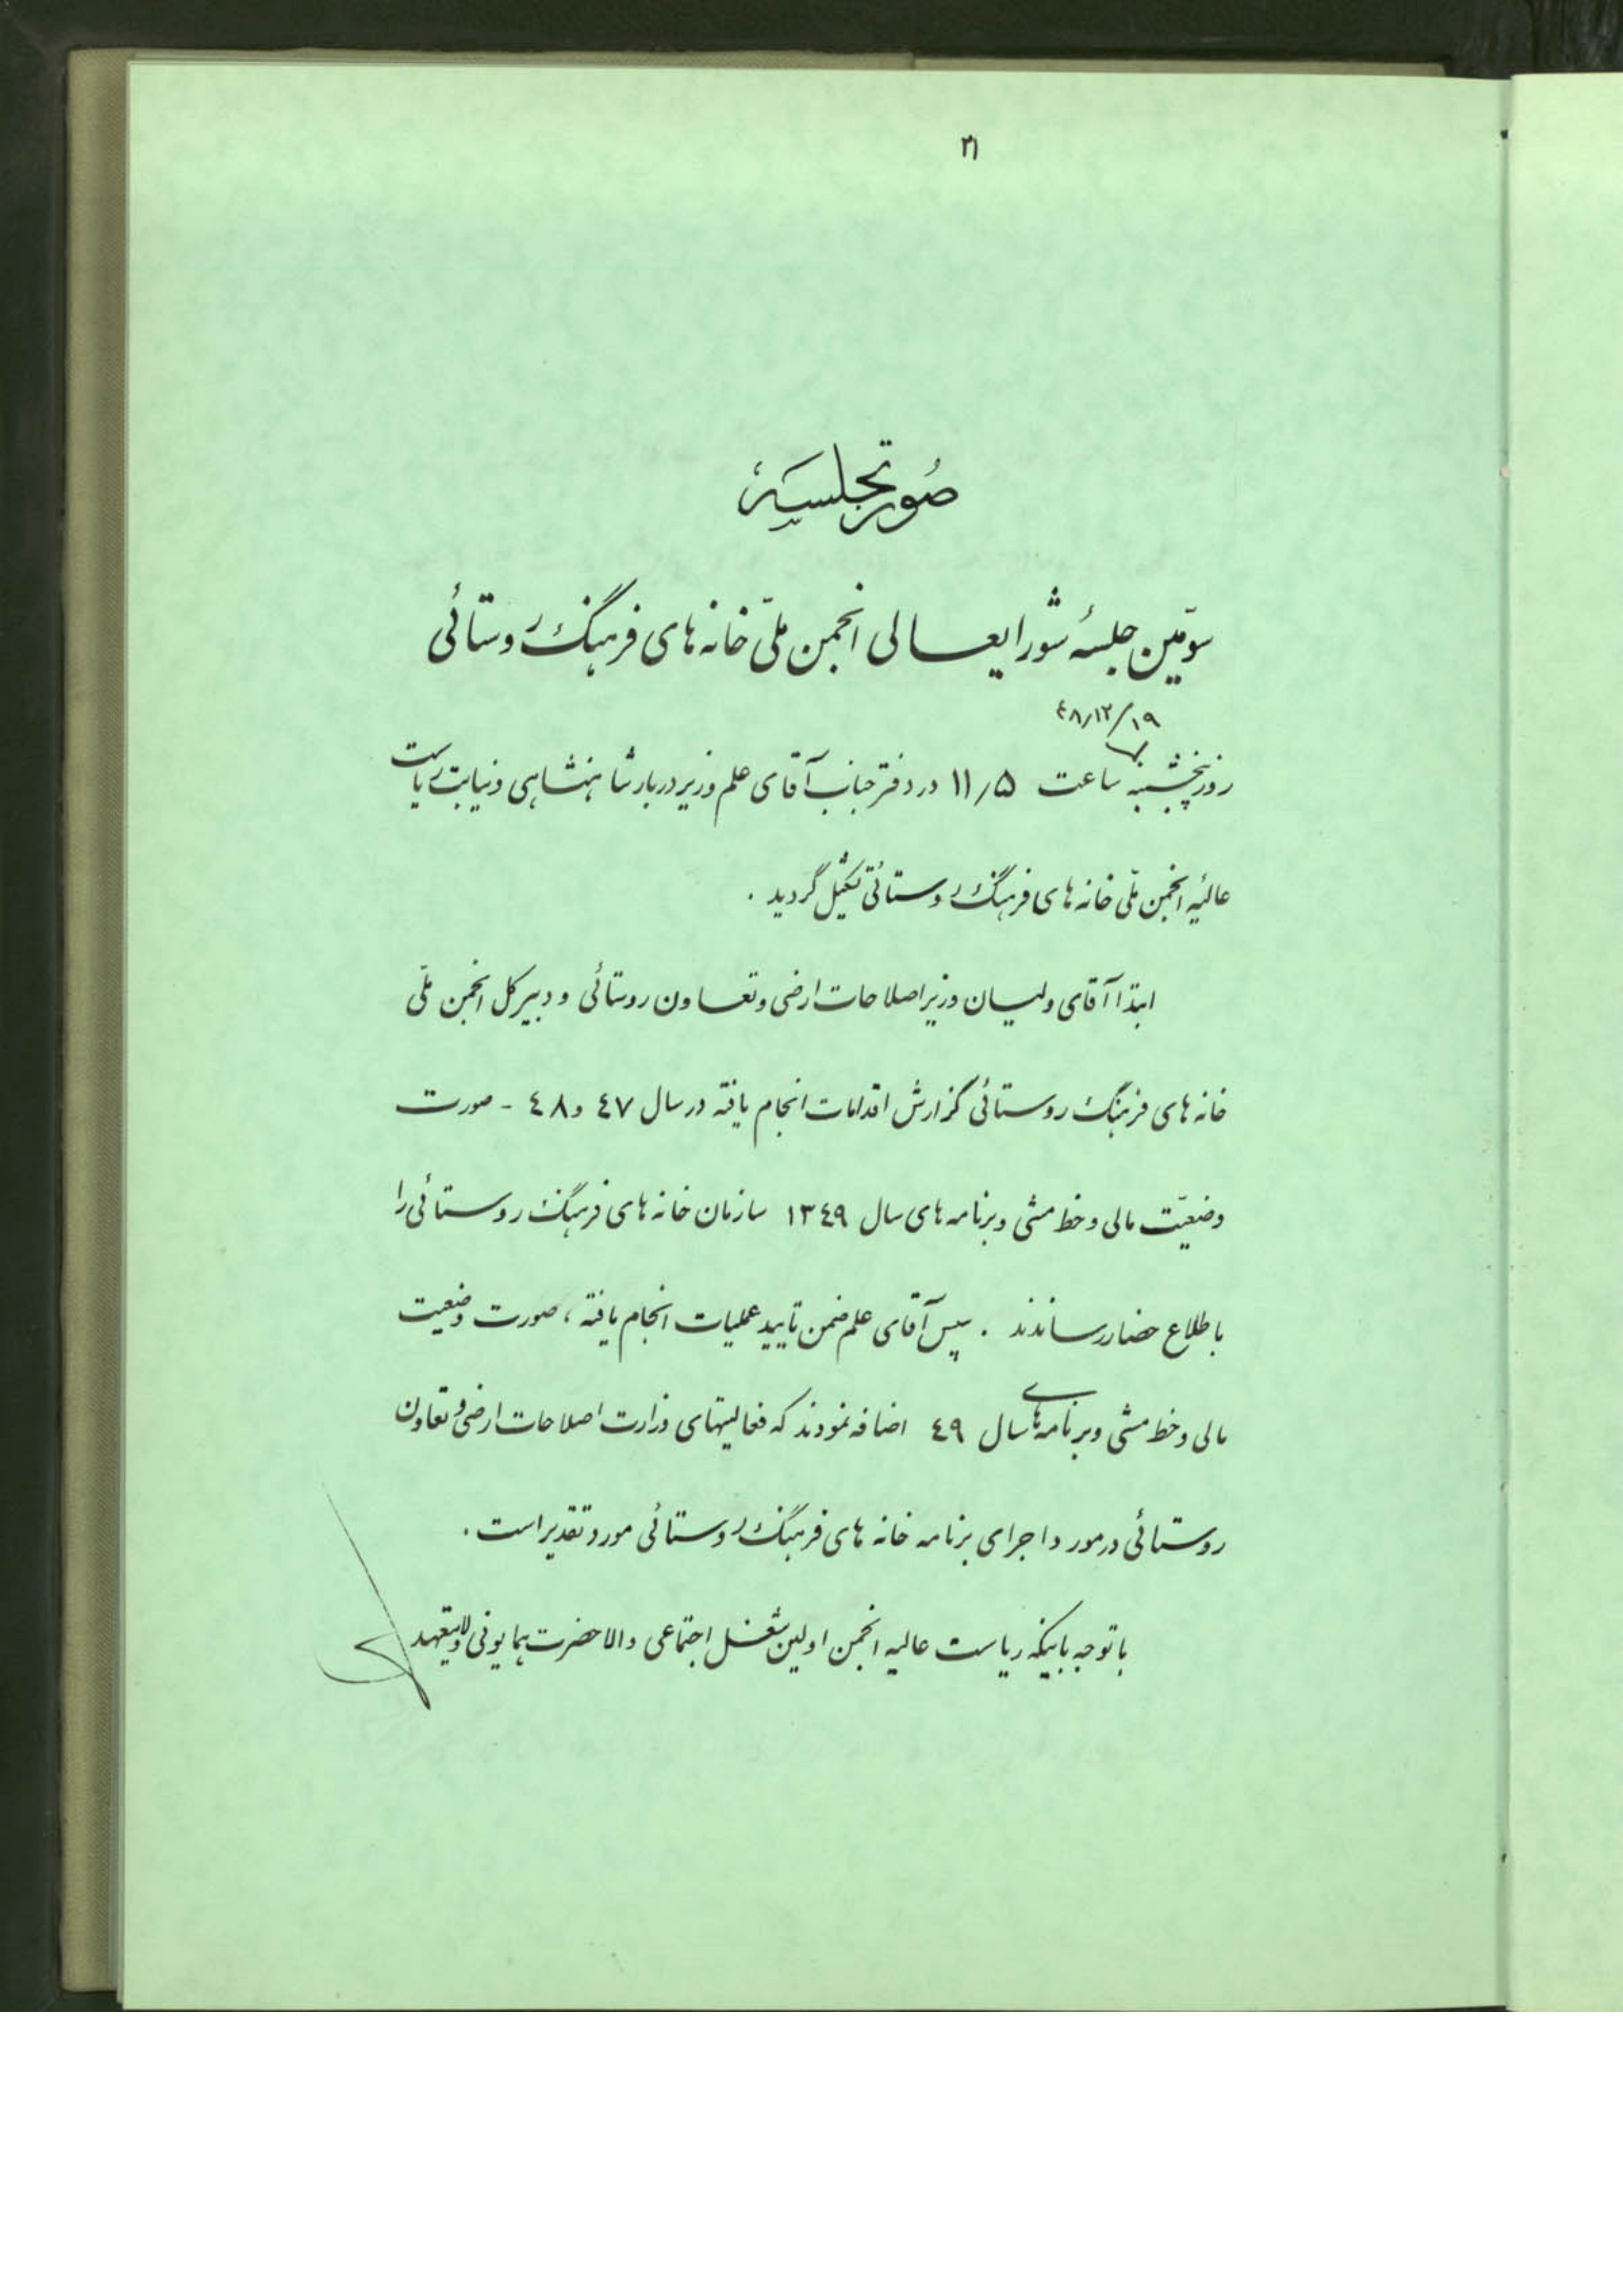 ۳۱
صورتجلسهٔ
سوّمین جلسهٔ شورایعالی انجمن ملّی خانه‌های فرهنگ روستائی
٤٨/١٢/١٩
روز پنجشنبه ساعت ١١/۵ در دفتر جناب آقای علم وزیر دربار شاهنشاهی و نیابت ریاست
عالیه انجمن ملّی خانه‌های فرهنگ روستائی تشکیل گردید .
ابتدا آقای ولیان وزیر اصلاحات ارضی و تعاون روستائی و دبیر کل انجمن ملّی
خانه‌های فرهنگ روستائی گزارش اقدامات انجام یافته در سال ٤٧ و ٤٨ - صورت
وضعیّت مالی و خط مشی و برنامه‌های سال ١٣٤٩ سازمان خانه‌های فرهنگ روستائی را
باطلاع حضار رساندند . سپس آقای علم ضمن تایید عملیات انجام یافته ، صورت وضعیت
مالی و خط مشی و برنامه‌های سال ٤٩ اضافه نمودند که فعالیتهای وزارت اصلاحات ارضی و تعاون
روستائی در مورد اجرای برنامه خانه های فرهنگ روستائی مورد تقدیر است .
با توجه باینکه ریاست عالیه انجمن اولین شغل اجتماعی والاحضرت همایونی ولایتعهد